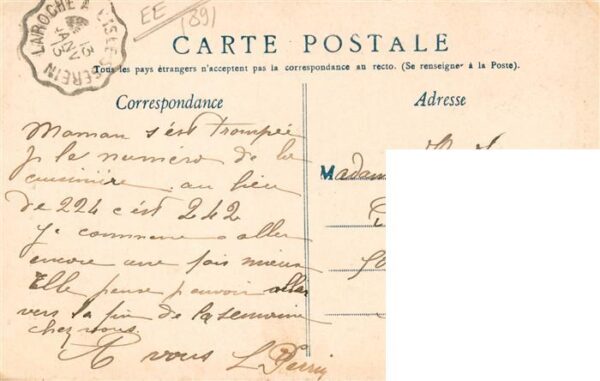 EE (89)
LAROCHE A L'ISLE S SEREIN
13
JANV
13
CARTE POSTALE
Tous les pays étrangers n'acceptent pas la correspondance au recto. (Se renseigner à la Poste).
Correspondance
Maman s'est trompée
p le numéro de la
cuisinière au lieu
de 224 c'est 242
Je commence a aller
encore une fois mieux
Elle pense pouvoir aller
vers la fin de la semaine
chez vous.
A vous L Perrin
Adresse
Madam